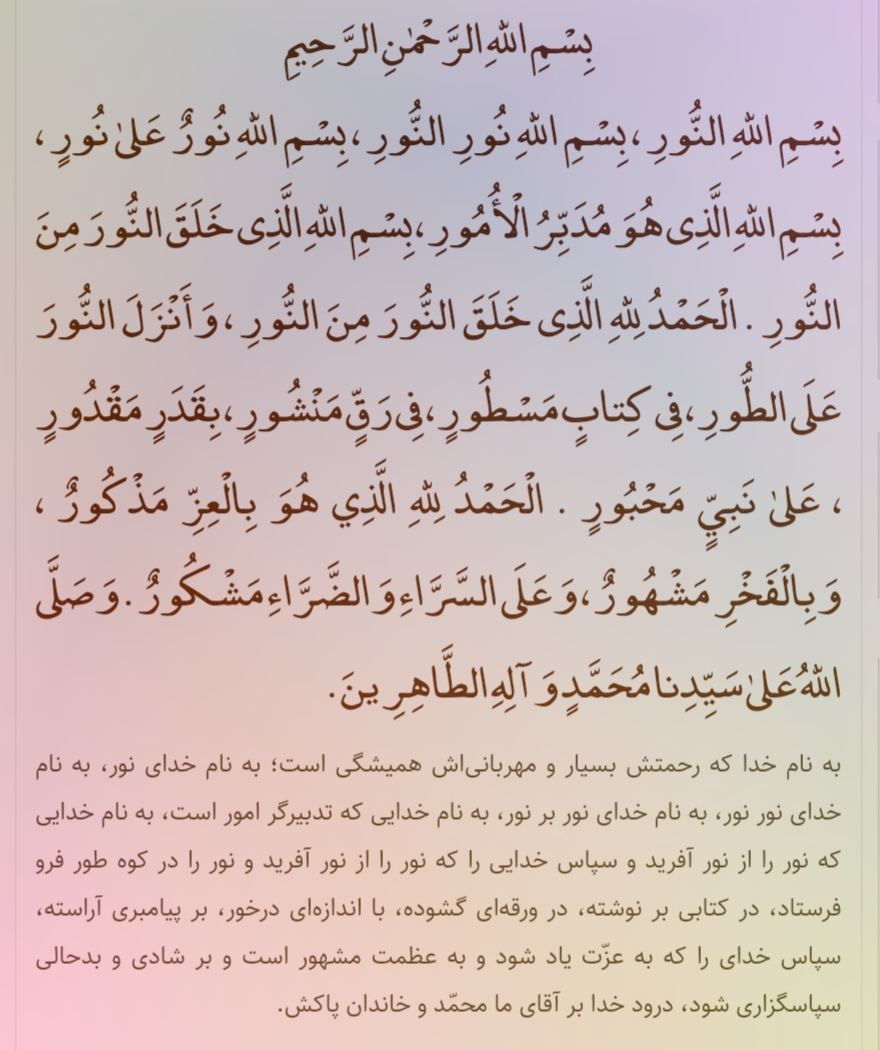 بِسْمِ اللّٰهِ الرَّحْمٰنِ الرَّحِيمِ
بِسْمِ اللّٰهِ النُّورِ ،بِسْمِ اللّٰهِ نُورِ النُّورِ ،بِسْمِ اللّٰهِ نُورٌ عَلىٰ نُورٍ ،
بِسْمِ اللّٰهِ الَّذِى هُوَ مُدَبِّرُ الْأُمُورِ ،بِسْمِ اللّٰهِ الَّذِى خَلَقَ النُّورَ مِنَ
النُّورِ . الْحَمْدُ لِلّٰهِ الَّذِى خَلَقَ النُّورَ مِنَ النُّورِ ، وَ أَنْزَلَ النُّورَ
عَلَى الطُّورِ ،فِى كِتابٍ مَسْطُورٍ ،فِى رَقٍّ مَنْشُورٍ ،بِقَدَرٍ مَقْدُورٍ
، عَلىٰ نَبِيٍّ مَحْبُورٍ . الْحَمْدُ لِلّٰهِ الَّذِي هُوَ بِالْعِزِّ مَذْكُورٌ ،
وَ بِالْفَخْرِ مَشْهُورٌ ،وَ عَلَى السَّرَّاءِ وَ الضَّرَّاءِ مَشْكُورٌ .وَ صَلَّى
اللّٰهُ عَلىٰ سَيِّدِنا مُحَمَّدٍ وَ آلِهِ الطَّاهِرِينَ.
به نام خدا که رحمتش بسیار و مهربانی‌اش همیشگی است؛ به نام خدای نور، به نام
خدای نور نور، به نام خدای نور بر نور، به نام خدایی که تدبیرگر امور است، به نام خدایی
که نور را از نور آفرید و سپاس خدایی را که نور را از نور آفرید و نور را در کوه طور فرو
فرستاد، در کتابی بر نوشته، در ورقه‌ای گشوده، با اندازه‌ای درخور، بر پیامبری آراسته،
سپاس خدای را که به عزّت یاد شود و به عظمت مشهور است و بر شادی و بدحالی
سپاسگزاری شود، درود خدا بر آقای ما محمّد و خاندان پاکش.